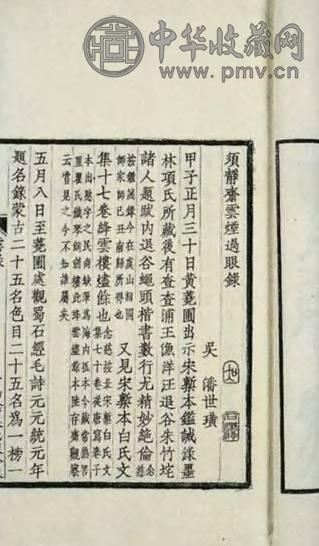 中华收藏网
www.pmv.cn
須靜齋雲煙過眼錄
吳 潘世璜
甲子正月三十日黃蕘圃出示宋槧本鑑誡錄墨
林項氏所藏後有查查浦王漁洋王退谷朱竹垞
諸人題跋內退谷蠅頭楷書數行尤精妙絕倫
按鑑誡錄今在虞山相國
師家師己丑南歸所得也
又見宋槧本白氏文
集十七卷絳雲樓燼餘也
五月八日至蕘圃處觀蜀石經毛詩元元統元年
題名錄蒙古二十五名色目二十五名為一榜一